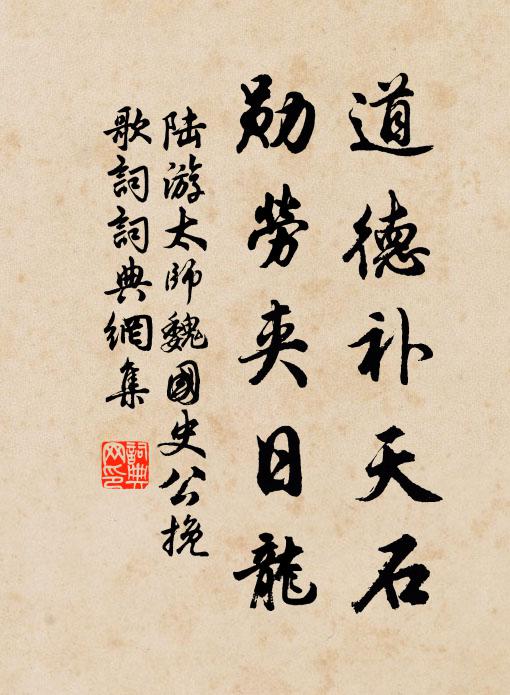 道德补天石
勋劳夹日龙
陆游太师魏國史公挽
歌詞詞典網集
詞典
网印